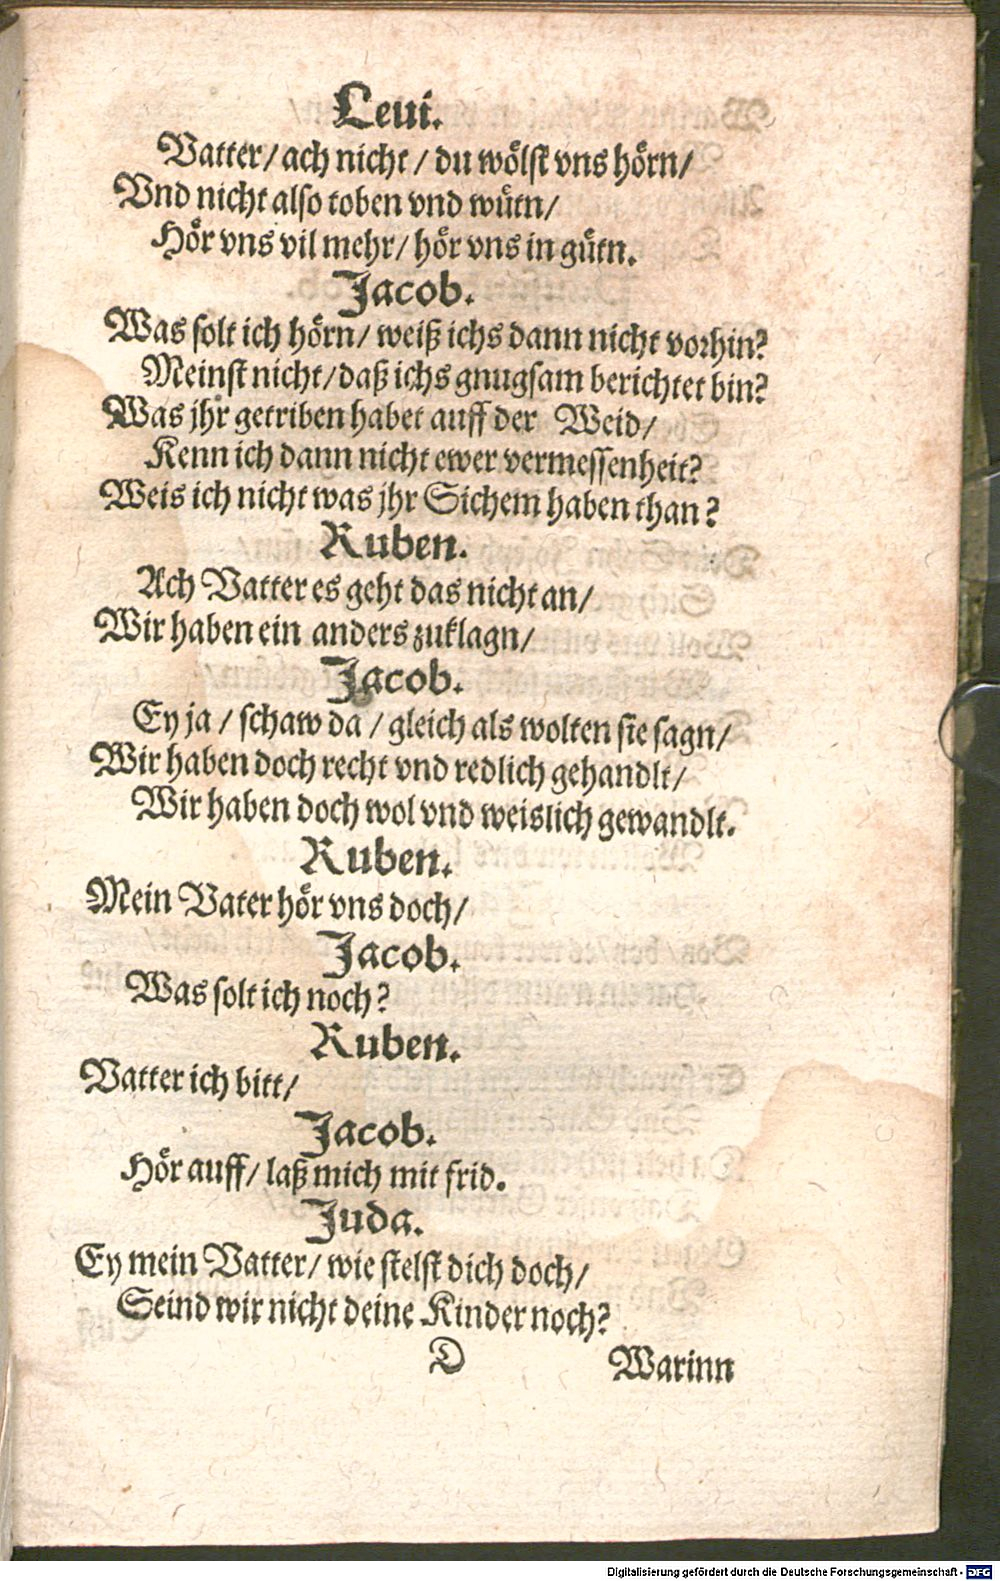 Leui.
Vatter/ ach nicht / du wölst vns hörn/
Vnd nicht also toben vnd wütn/
Hör vns vil mehr/ hör vns in gütn.
Jacob.
Was solt ich hörn/ weiß ichs dann nicht vorhin?
Meinst nicht/ daß ichs gnugsam berichtet bin?
Was jhr getriben habet auff der Weid/
Kenn ich dann nicht ewer vermessenheit?
Weis ich nicht was jhr Sichem haben than?
Ruben.
Ach Vatter es geht das nicht an/
Wir haben ein anders zuklagn/
Jacob.
Ey ja / schaw da / gleich als wolten sie sagn/
Wir haben doch recht vnd redlich gehandlt/
Wir haben doch wol vnd weislich gewandlt.
Ruben.
Mein Vater hör vns doch/
Jacob.
Was solt ich noch?
Ruben.
Vatter ich bitt/
Jacob.
Hör auff/ laß mich mit frid.
Juda.
Ey mein Vatter/ wie stelst dich doch/
Seind wir nicht deine Kinder noch?
D Warinn
Digitalisierung gefördert durch die Deutsche Forschungsgemeinschaft - DFG